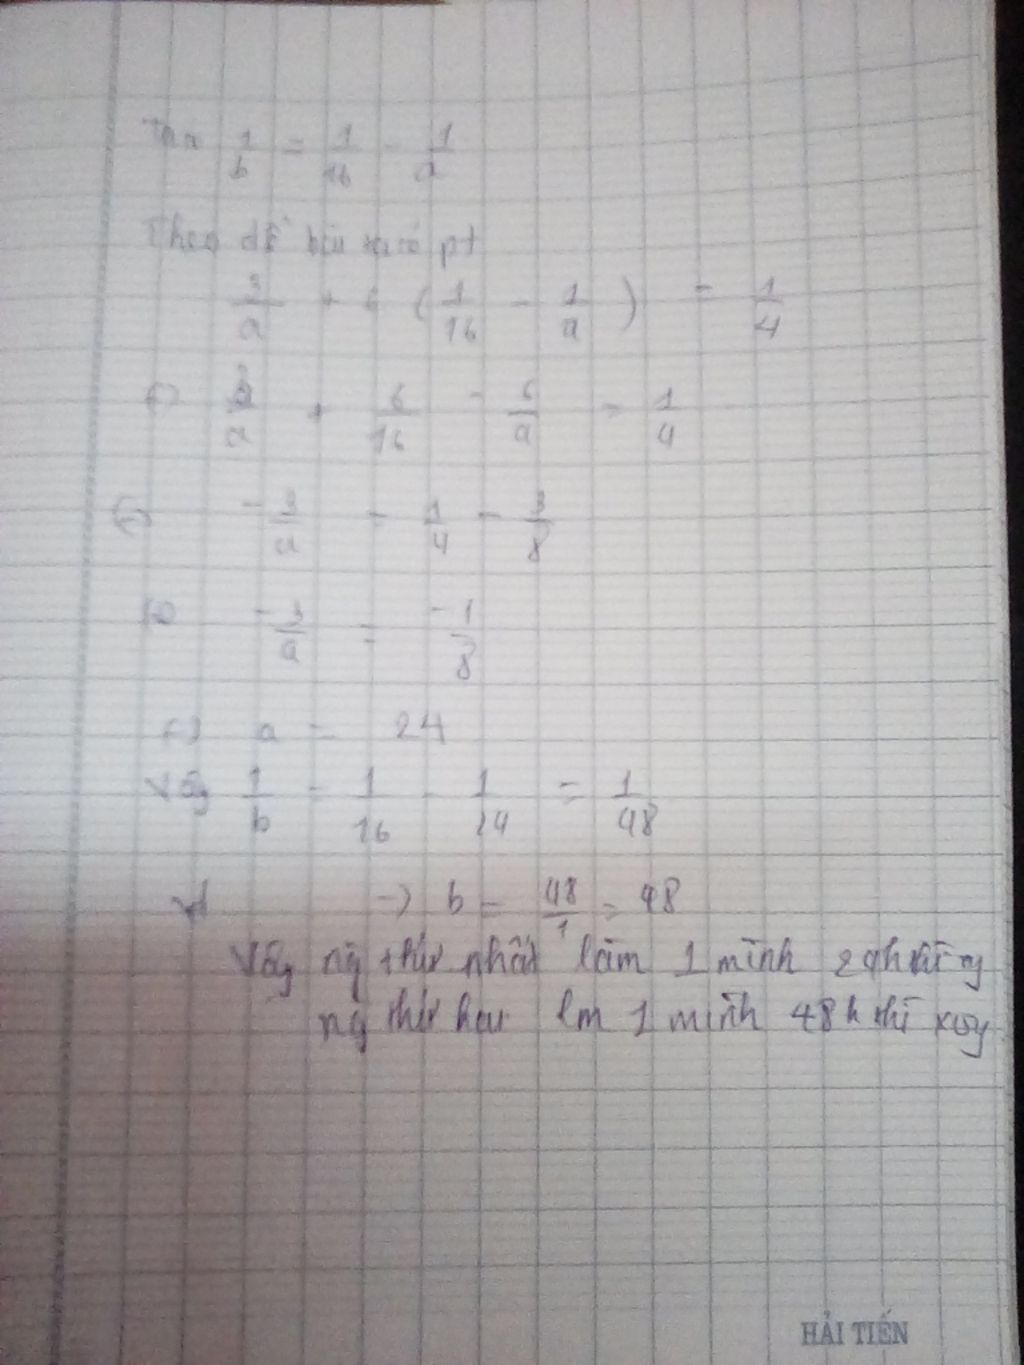 1/b = 1/16 - 1/a
Theo đề bài ta có pt
3/a + 6 (1/16 - 1/a) = 1/4
3/a + 6/16 - 6/a = 1/4
-3/a = 1/4 - 3/8
-3/a = -1/8
a = 24
Vậy 1/b = 1/16 - 1/24 = 1/48
-> b = 48/1 = 48
Vậy ng thứ nhất làm 1 mình 24h thì
ng thứ hai lm 1 mình 48h thì xog
HẢI TIẾN